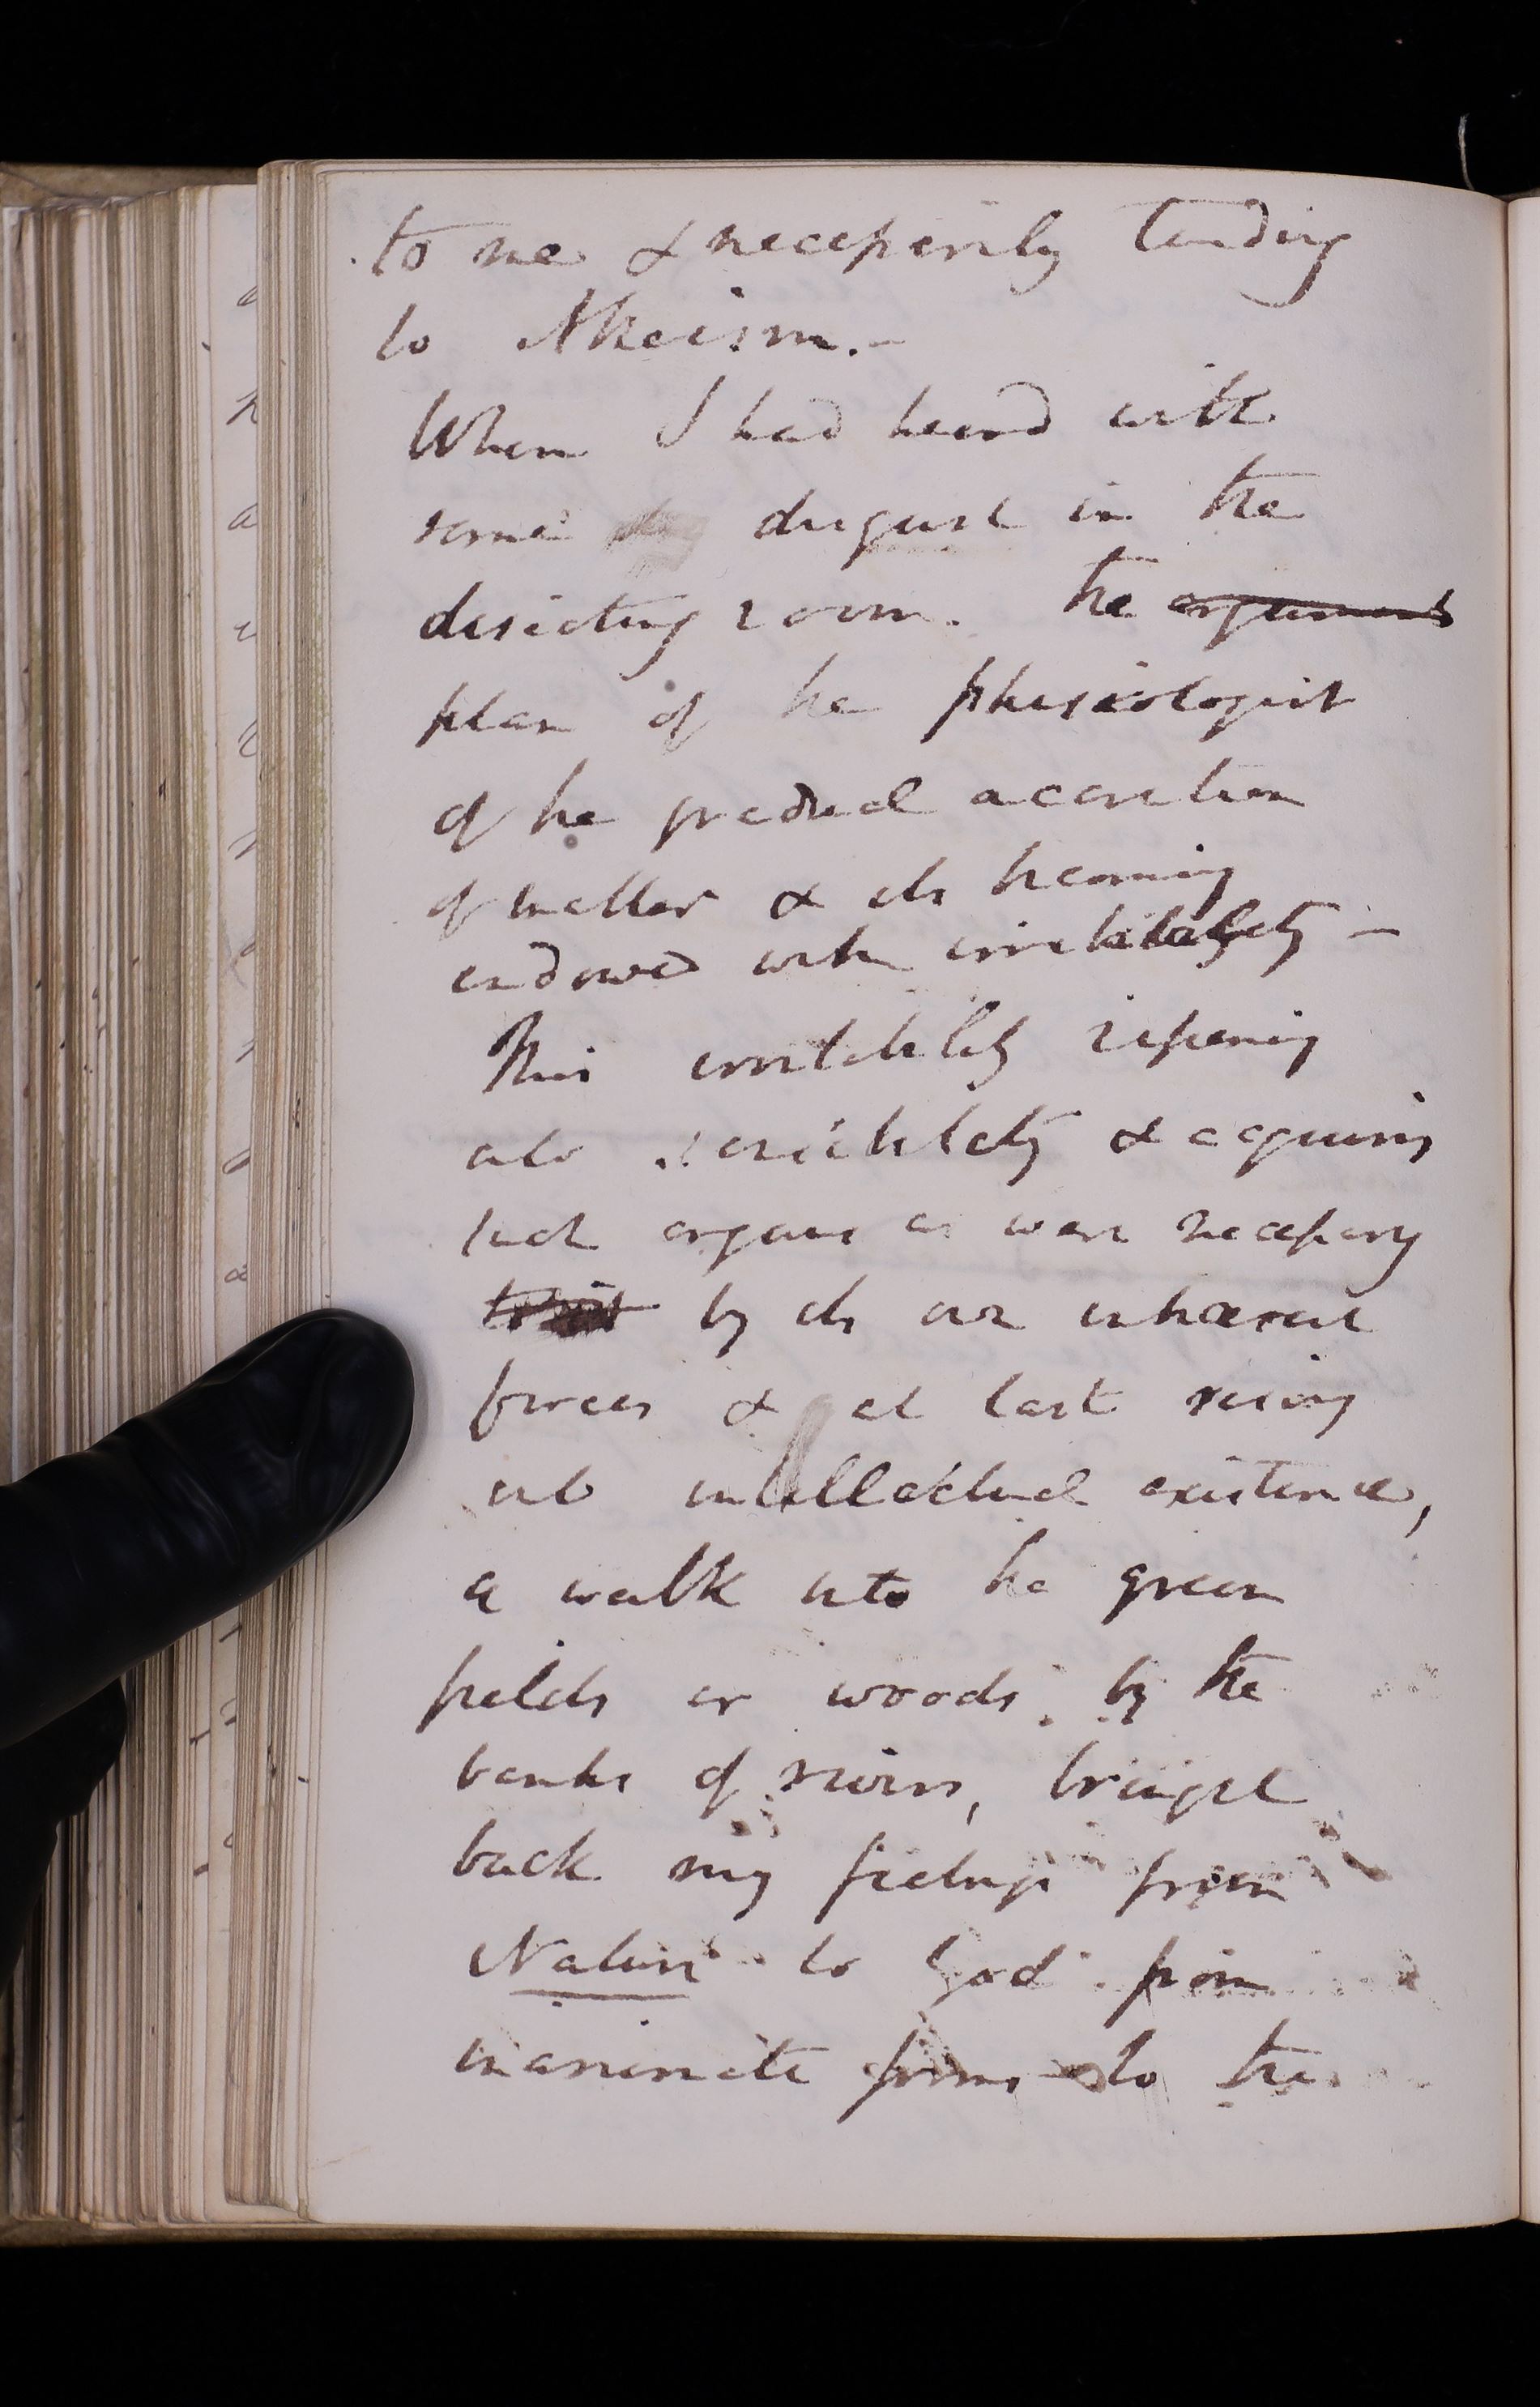 to me & necessarily tending
to Atheism. –
When I had heard with
some disgust in the
disecting room. the arguments
plan of the physiologist
of the gradual accretion
of matter & its becoming
endowed with irritability –
This irritability ripening
into sensibility & acquiring
such organs as were necessary
by its own inherent
forces & at last rising
into intellectual existence,
a walk into the green
fields or woods by the
banks of rivers, brought
back my feelings from
Nature to God from
inanimate forms to the